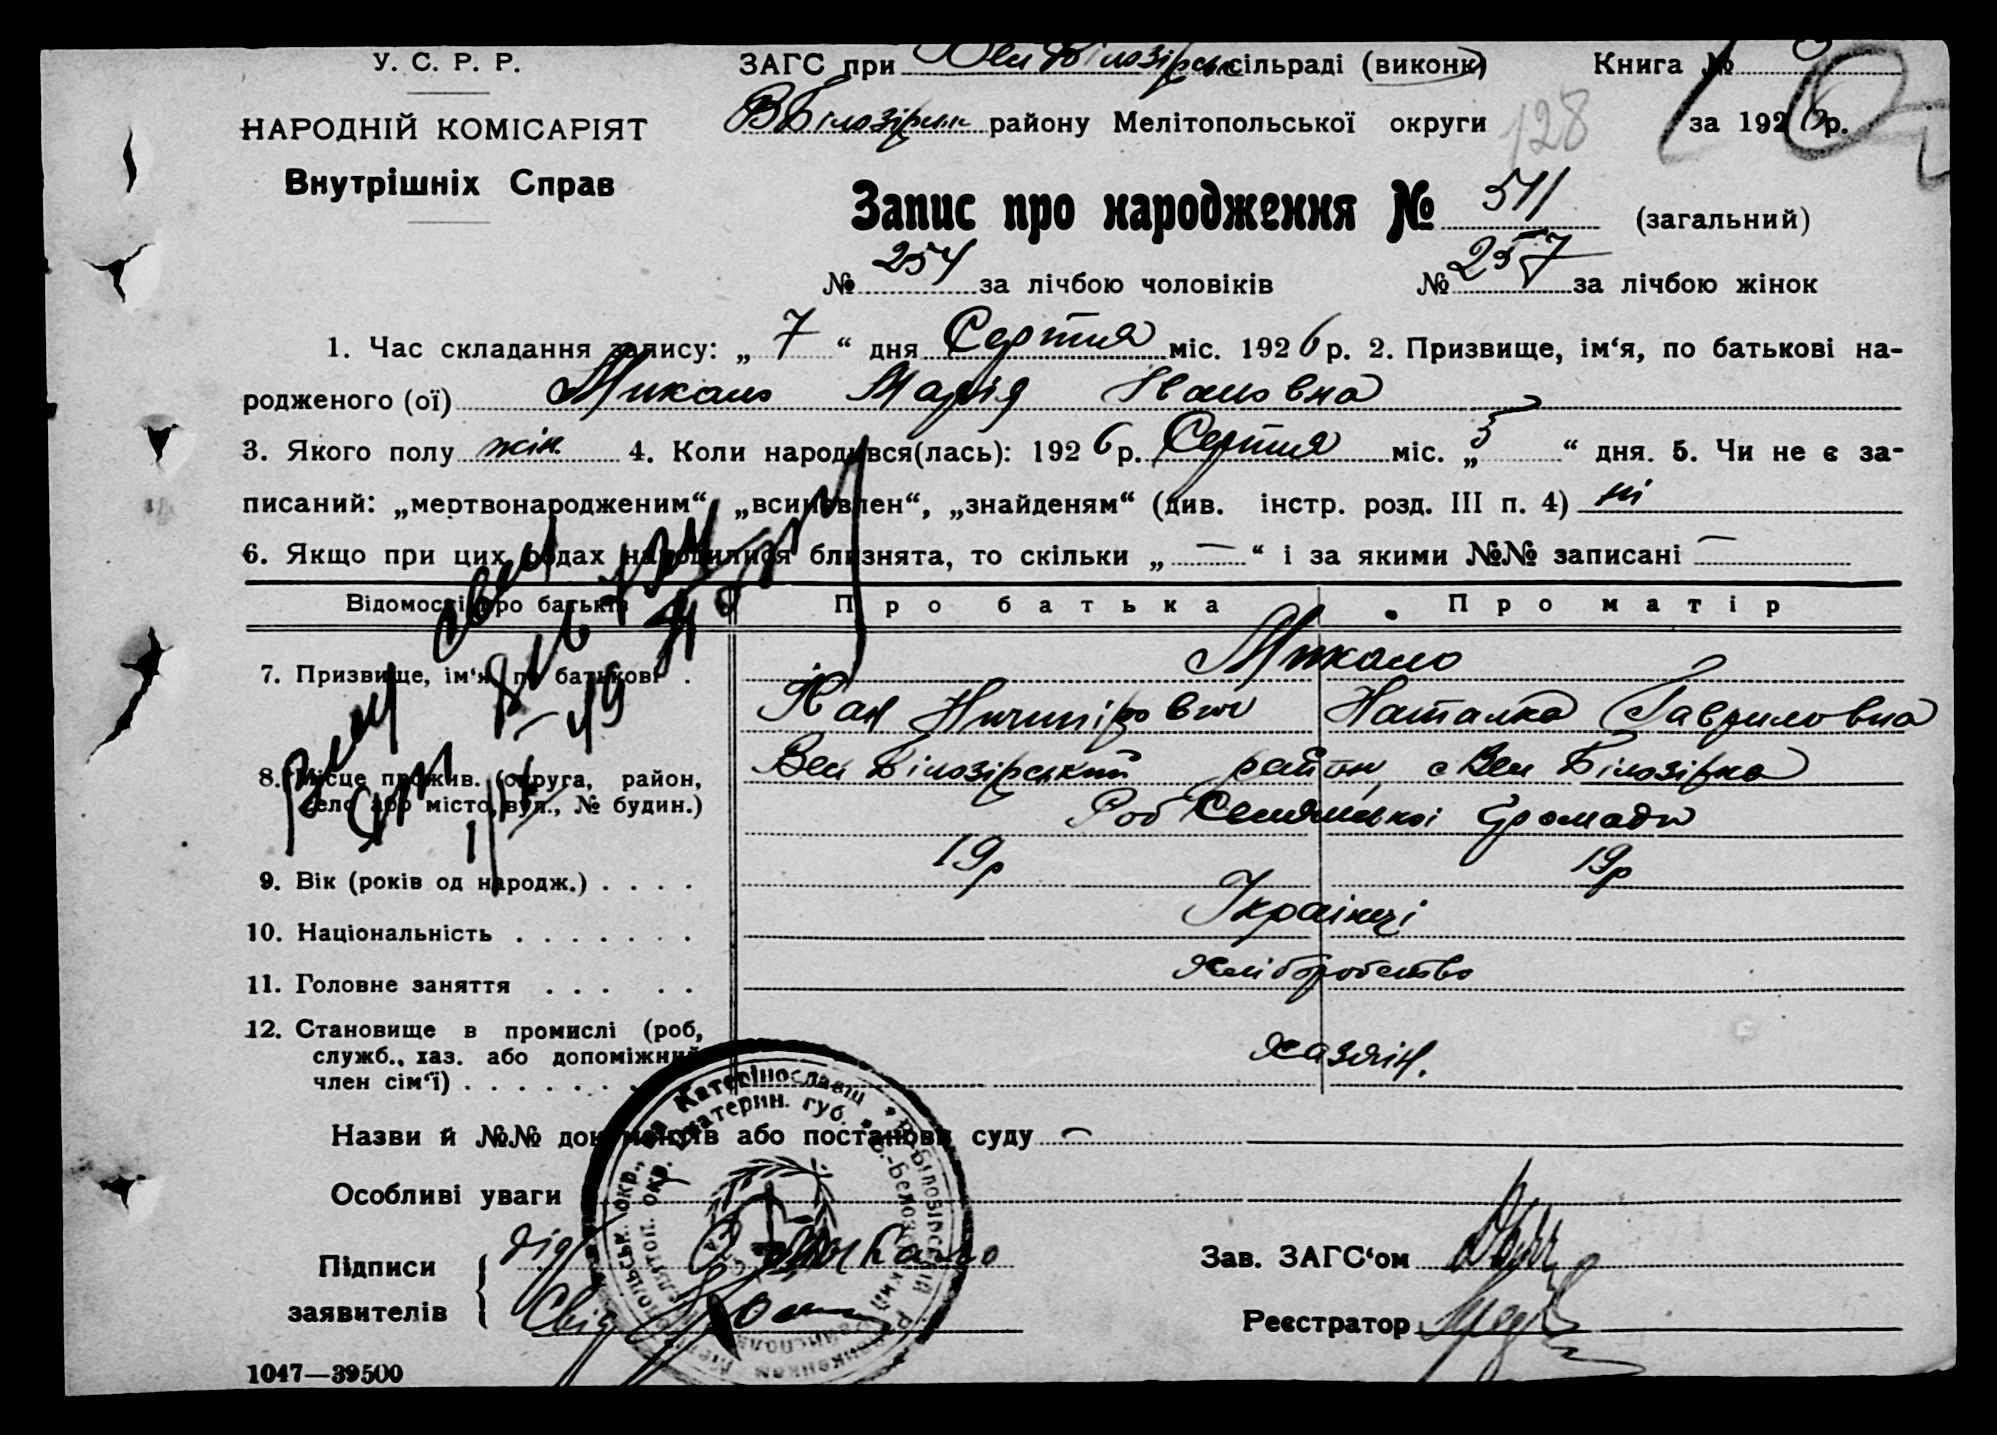 У. С. Р. Р.
НАРОДНІЙ КОМІСАРІЯТ
Внутрішніх Справ
ЗАГС при Вел Білозірськ сільраді (виконк)
Книга №
В Білозірськ району Мелітопольської округи
за 1926 р.
128
Запис про народження № 511 (загальний)
№ 254 за лічбою чоловіків № 257 за лічбою жінок
1. Час складання запису: „ 7 “ дня Серпня міс. 1926 р. 2. Призвище, ім‘я, по батькові на-
родженого (ої) Микало Марія Івановна
3. Якого полу жін. 4. Коли народився(лась): 1926 р. Серпня міс. „ 5 “ дня. 5. Чи не є за-
писаний: „мертвонародженим“, „всиновлен“, „знайденям“ (див. інстр. розд. III п. 4) ні
6. Якщо при цих родах народилися близнята, то скільки „ — “ і за якими №№ записані —
Відомості про батьків Про батька Про матір
7. Призвище, ім‘я, по батькові .
Микало
Іван Ничипірович Наталка Гавриловна
8. Місце прожив. (округа, район,
село або місто, вул., № будин.)
Вел Білозірський район с Вел Білозірка
Селянської Громади
9. Вік (років од народж.) . . . . 19р 19р
10. Національність . . . . . . . Українці
11. Головне заняття . . . . . Хліборобство
12. Становище в промислі (роб,
служб., хаз. або допоміжний
член сім‘ї) . . . . . . .
Хазяїн.
Назви й №№ документів або постанови суду —
Особливі уваги
Підписи
заявителів
дід Микало
Свід
Зав. ЗАГС‘ом
Реєстратор
1047—39500